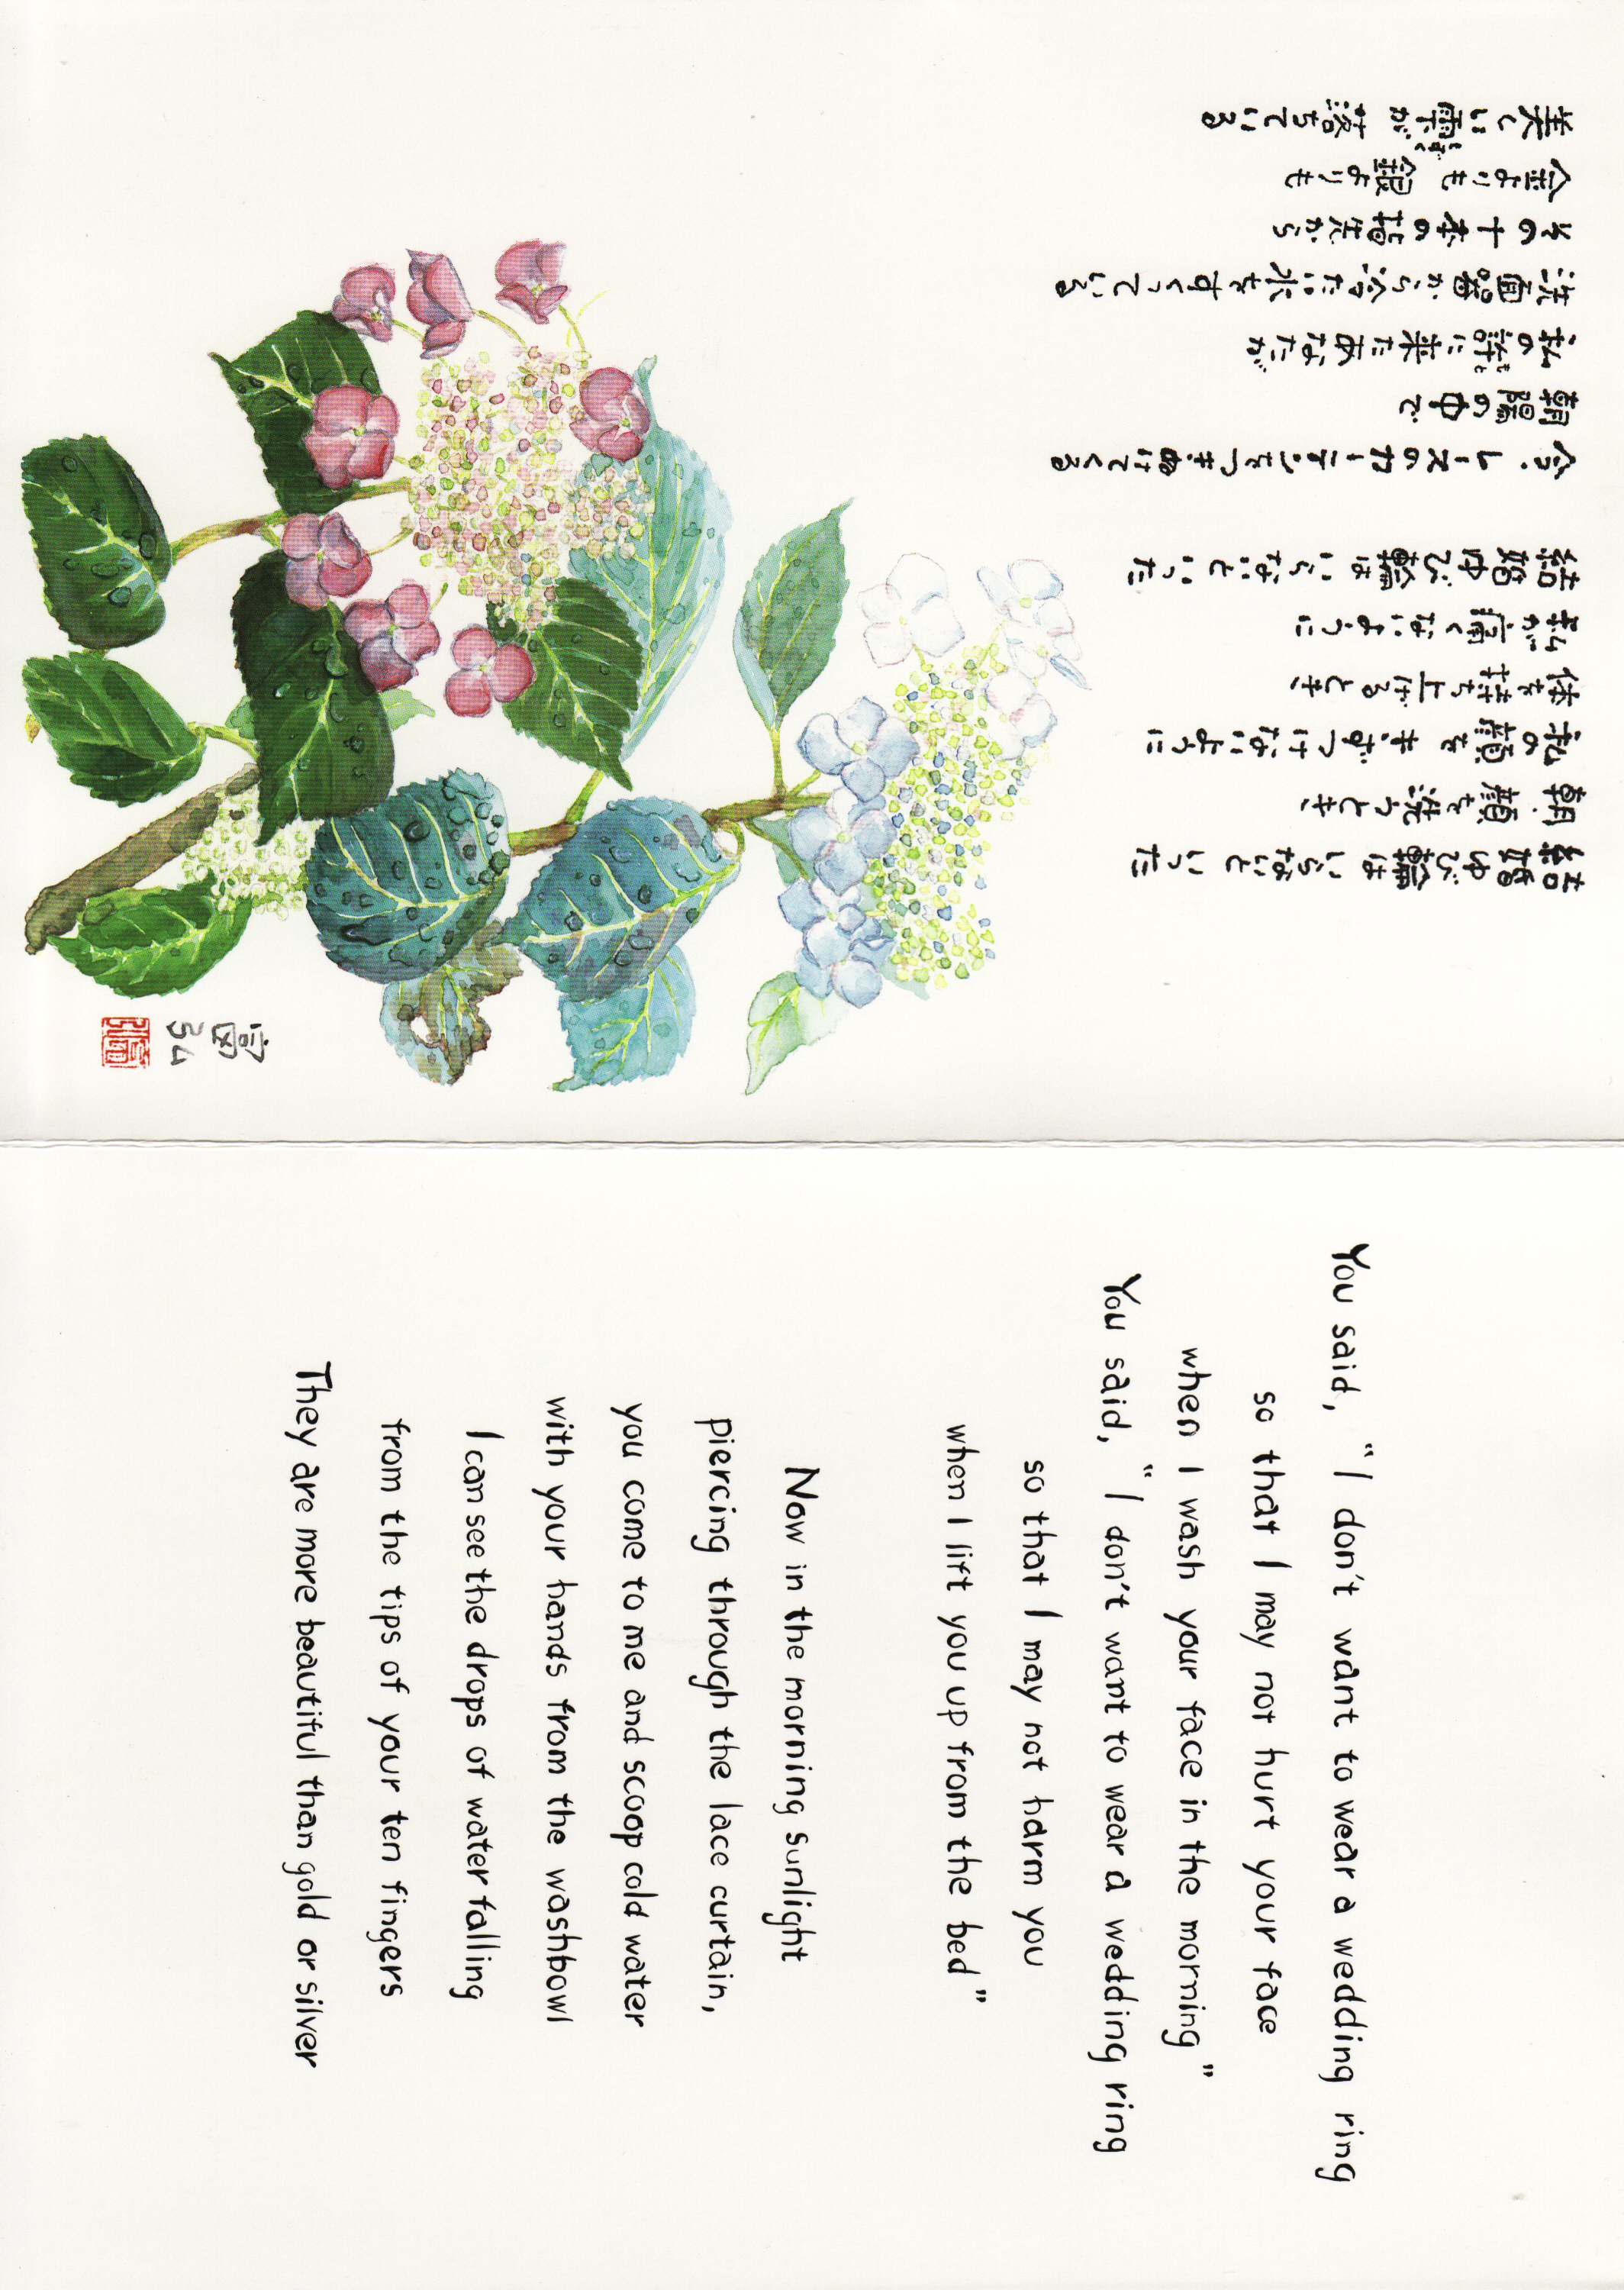 結婚ゆび輪はいらないといった
朝、顔を洗うとき
私の顔をきずつけないように
体を持ち上げるとき
私が痛くないように
結婚ゆび輪はいらないといった
今、レースのカーテンをつきぬけてくる
朝陽の中で
私の許にもと来たあなたが
洗面器から冷たい水をすくっている
その十本の指先から
金よりも 銀よりも
美しい雫がしずく 落ちている
富弘
You said, “I don't want to wear a wedding ring
so that I may not hurt your face
when I wash your face in the morning”
You said, “I don't want to wear a wedding ring
so that I may not harm you
when I lift you up from the bed”
Now in the morning sunlight
piercing through the lace curtain,
you come to me and scoop cold water
with your hands from the washbowl
I can see the drops of water falling
from the tips of your ten fingers
They are more beautiful than gold or silver